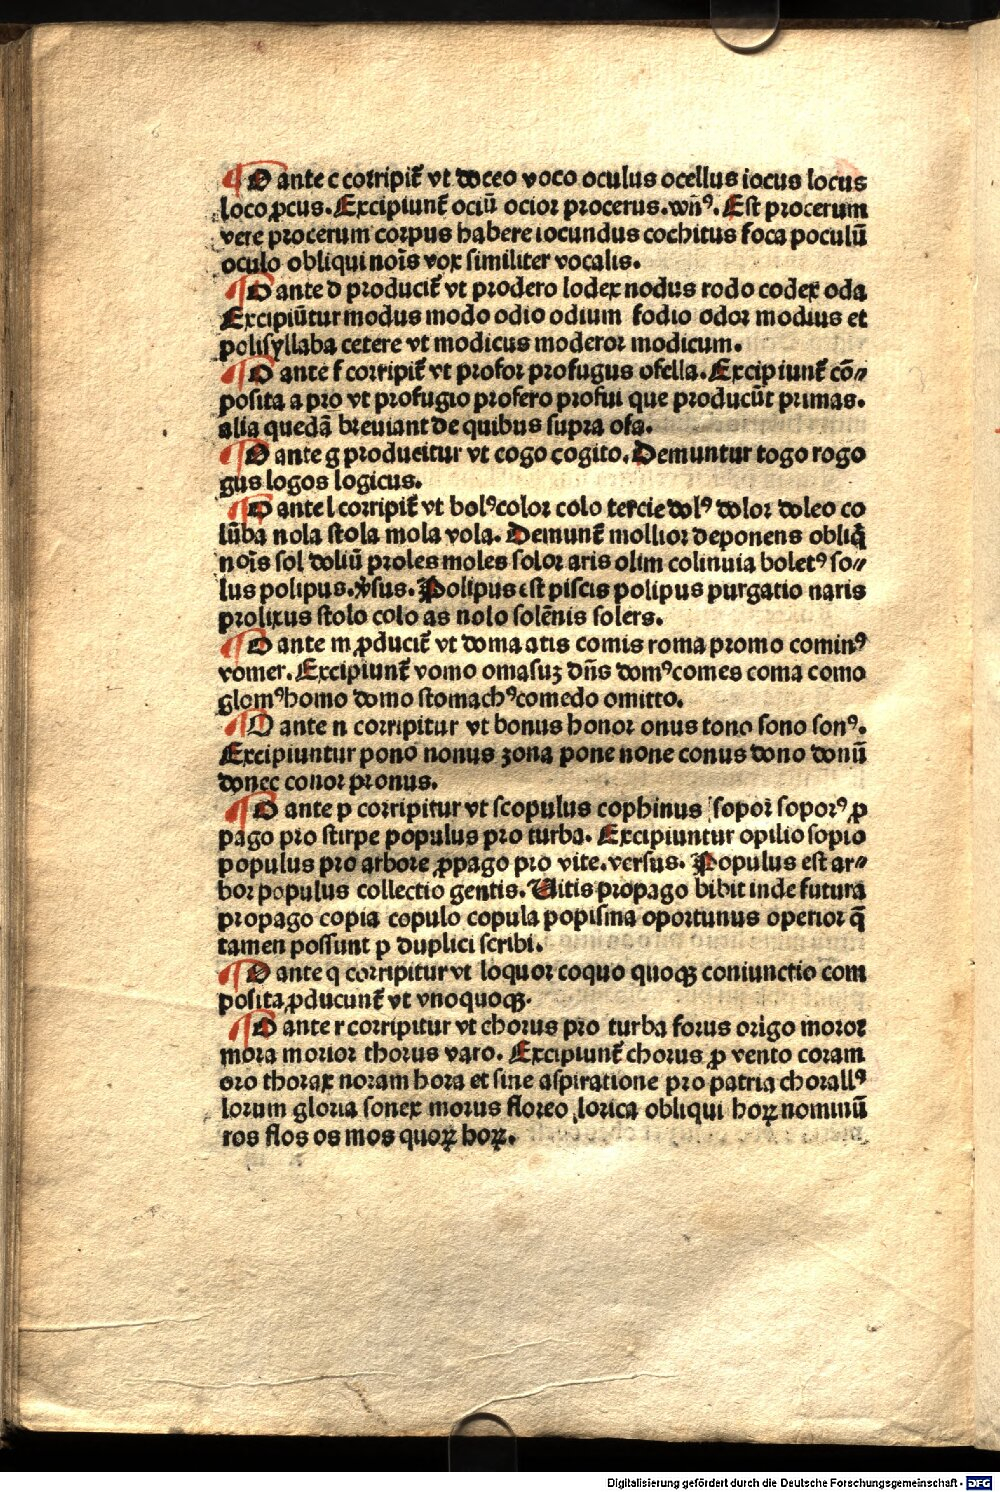 ¶ O ante c corripit̃ vt doceo voco oculus ocellus iocus locus
loco ꝓcus. Excipiunt̃ ociũ ocior procerus. vñꝰ. Est procerum
vere procerum corpus habere iocundus cochitus foca poculũ
oculo obliqui noĩs vox similiter vocalis.
¶ O ante d producit̃ vt prodero lodex nodus rodo codex oda
Excipiũtur modus modo odio odium fodio odor modius et
polisyllaba cetere vt modicus moderor modicum.
¶ O ante f corripit̃ vt profor profugus ofella. Excipiunt̃ cõ⸗
posita a pro vt profugio profero profui que producũt primas.
alia quedã breuiant de quibus supra ofa.
¶ O ante g producitur vt cogo cogito. Demuntur togo rogo
gus logos logicus.
¶ O ante l corripit̃ vt bolꝰ color colo tercie dolꝰ dolor doleo co
lũba nola stola mola vola. Demunt̃ mollior deponens obliq̃
noĩs sol doliũ proles moles solor aris olim colinuia boletꝰ so⸗
lus polipus. v̾sus. Polipus est piscis polipus purgatio naris
prolixus stolo colo as nolo solẽnis solers.
¶ O ante m ꝓducit̃ vt doma atis comis roma promo cominꝰ
vomer. Excipiunt̃ vomo omasuꝫ dñs domꝰ comes coma como
glomꝰ homo domo stomachꝰ comedo omitto.
¶ O ante n corripitur vt bonus honor onus tono sono sonꝰ.
Excipiuntur pono nonus zona pone none conus dono donũ
donec conor pronus.
¶ O ante p corripitur vt scopulus cophinus sopor soporꝰ ꝓ
pago pro stirpe populus pro turba. Excipiuntur opilio sopio
populus pro arbore ꝓpago pro vite. versus. Populus est ar⸗
bor populus collectio gentis. Uitis propago bibit inde futura
propago copia copulo copula popisma oportunus operior q̃
tamen possunt p duplici scribi.
¶ O ante q corripitur vt loquor coquo quoqꝫ coniunctio com
posita ꝓducunt̃ vt vnoquoqꝫ.
¶ O ante r corripitur vt chorus pro turba forus origo moror
mora morior thorus varo. Excipiunt̃ chorus ꝓ vento coram
oro thorax noram hora et sine aspiratione pro patria chorallꝰ
lorum gloria sonex morus floreo lorica obliqui hoꝝ nominũ
ros flos os mos quoꝝ hoꝝ.
Digitalisierung gefördert durch die Deutsche Forschungsgemeinschaft - DFG